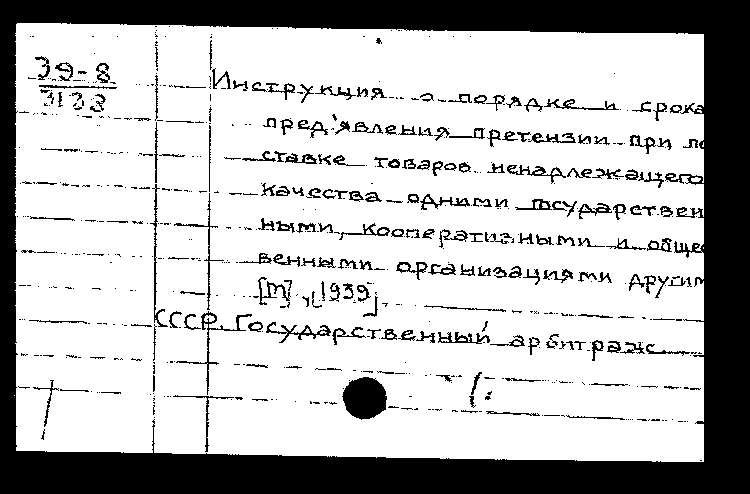 39-8
3133
Инструкция о порядке и срока
пред'явления претензии при по
ставке товаров ненадлежащего
качества одними государствен
ными, кооперативными и общес
венными организациями другим
[М], [1939].
СССР. Государственный арбитраж